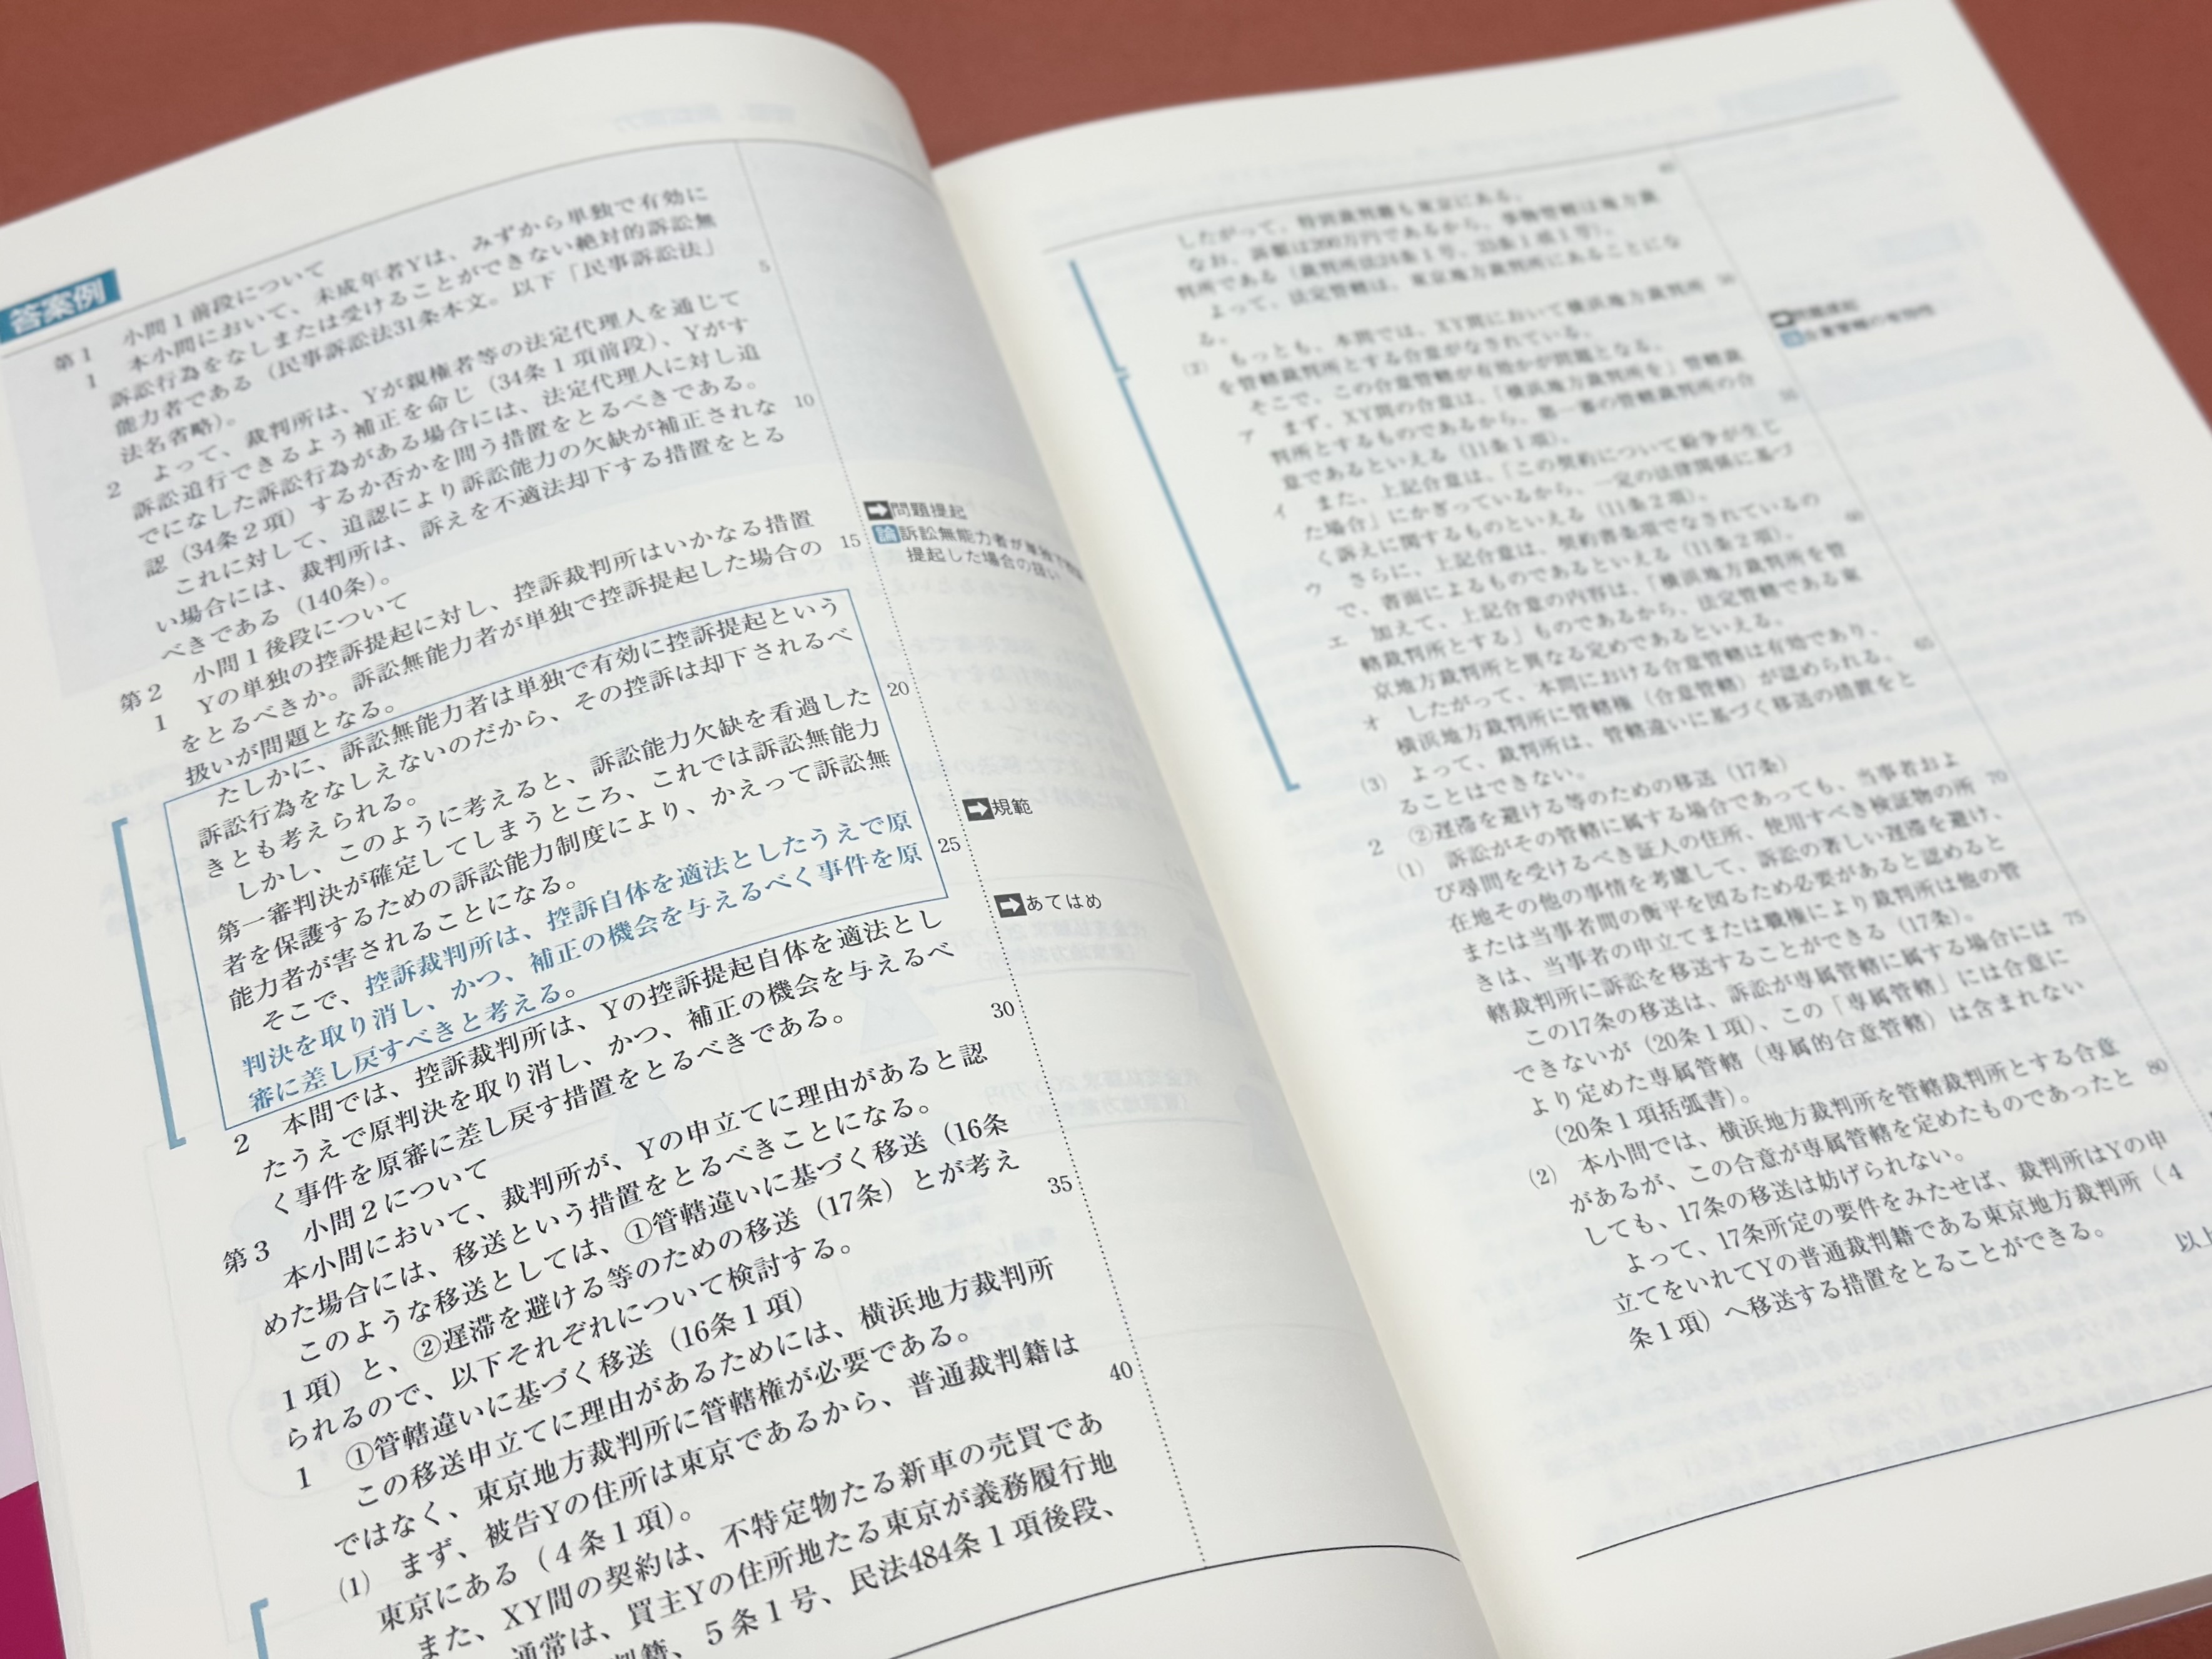 答案例
第1 小問1前段について
1 本小問において、未成年者Yは、みずから単独で有効に
訴訟行為をなしまたは受けることができない絶対的訴訟無
能力者である（民事訴訟法31条本文。以下「民事訴訟法」
法名省略）。
2 よって、裁判所は、Yが親権者等の法定代理人を通じて
訴訟追行できるよう補正を命じ（34条1項前段）、Yがす
でになした訴訟行為がある場合には、法定代理人に対し追
認（34条2項）するか否かを問う措置をとるべきである。
これに対して、追認により訴訟能力の欠缺が補正されな
い場合には、裁判所は、訴えを不適法却下する措置をとる
べきである（140条）。
第2 小問1後段について
1 Yの単独の控訴提起に対し、控訴裁判所はいかなる措置
をとるべきか。訴訟無能力者が単独で控訴提起した場合の
扱いが問題となる。
たしかに、訴訟無能力者は単独で有効に控訴提起という
訴訟行為をなしえないのだから、その控訴は却下されるべ
きとも考えられる。
しかし、このように考えると、訴訟能力欠缺を看過した
第一審判決が確定してしまうところ、これでは訴訟無能力
者を保護するための訴訟能力制度により、かえって訴訟無
能力者が害されることになる。
そこで、控訴裁判所は、控訴自体を適法としたうえで原
判決を取り消し、かつ、補正の機会を与えるべく事件を原
審に差し戻すべきと考える。
2 本問では、控訴裁判所は、Yの控訴提起自体を適法とし
たうえで原判決を取り消し、かつ、補正の機会を与えるべ
く事件を原審に差し戻す措置をとるべきである。
第3 小問2について
本小問において、裁判所が、Yの申立てに理由があると認
めた場合には、移送という措置をとるべきことになる。
このような移送としては、①管轄違いに基づく移送（16条
1項）と、②遅滞を避ける等のための移送（17条）とが考え
られるので、以下それぞれについて検討する。
1 ①管轄違いに基づく移送（16条1項）
この移送申立てに理由があるためには、横浜地方裁判所
ではなく、東京地方裁判所に管轄権が必要である。
(1) まず、被告Yの住所は東京であるから、普通裁判籍は
東京にある（4条1項）。
また、XY間の契約は、不特定物たる新車の売買であ
通常は、買主Yの住所地たる東京が義務履行地
判籍、5条1号、民法484条1項後段、
5
10
15
20
25
30
35
40
問題提起
論 訴訟無能力者が単独で
提起した場合の扱い
規範
あてはめ
したがって、特別裁判籍も東京にある。
なお、訴額は200万円であるから、事物管轄は地方裁
判所である（裁判所法24条1号、33条1項1号）。
よって、法定管轄は、東京地方裁判所にあることにな
る。
(2) もっとも、本問では、XY間において横浜地方裁判所
を管轄裁判所とする合意がなされている。
そこで、この合意管轄が有効かが問題となる。
ア まず、XY間の合意は、「横浜地方裁判所を」管轄裁
判所とするものであるから、第一審の管轄裁判所の合
意であるといえる（11条1項）。
イ また、上記合意は、「この契約について紛争が生じ
た場合」にかぎっているから、一定の法律関係に基づ
く訴えに関するものといえる（11条2項）。
ウ さらに、上記合意は、契約書条項でなされているの
で、書面によるものであるといえる（11条2項）。
エ 加えて、上記合意の内容は、「横浜地方裁判所を管
轄裁判所とする」ものであるから、法定管轄である東
京地方裁判所と異なる定めであるといえる。
オ したがって、本問における合意管轄は有効であり、
横浜地方裁判所に管轄権（合意管轄）が認められる。
(3) よって、裁判所は、管轄違いに基づく移送の措置をと
ることはできない。
2 ②遅滞を避ける等のための移送（17条）
(1) 訴訟がその管轄に属する場合であっても、当事者およ
び尋問を受けるべき証人の住所、使用すべき検証物の所
在地その他の事情を考慮して、訴訟の著しい遅滞を避け、
または当事者間の衡平を図るため必要があると認めると
きは、当事者の申立てまたは職権により裁判所は他の管
轄裁判所に訴訟を移送することができる（17条）。
この17条の移送は、訴訟が専属管轄に属する場合には
できないが（20条1項）、この「専属管轄」には合意に
より定めた専属管轄（専属的合意管轄）は含まれない
（20条1項括弧書）。
(2) 本小問では、横浜地方裁判所を管轄裁判所とする合意
があるが、この合意が専属管轄を定めたものであったと
しても、17条の移送は妨げられない。
よって、17条所定の要件をみたせば、裁判所はYの申
立てをいれてYの普通裁判籍である東京地方裁判所（4
条1項）へ移送する措置をとることができる。
以上
65
70
75
80
問題提起
論 合意管轄の有効性